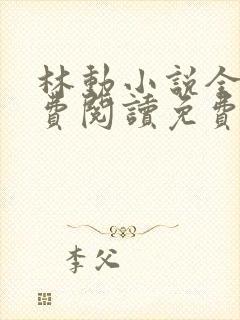 林動小說全
費閱讀免費
李父